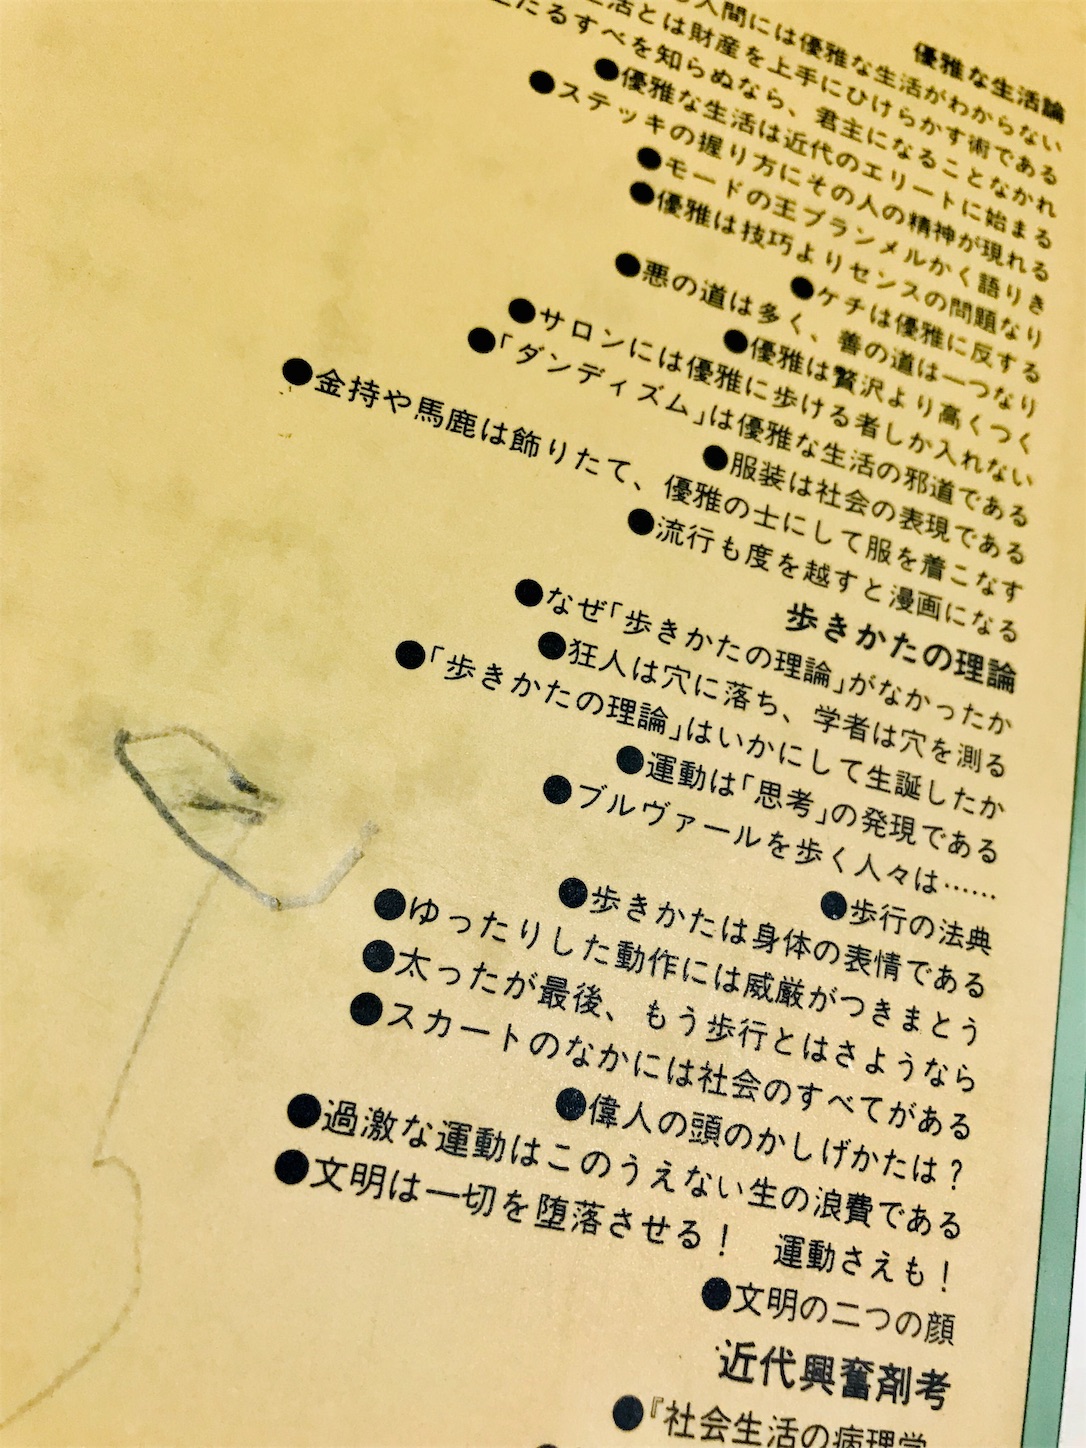 優雅な生活論
人間には優雅な生活がわからない
生活とは財産を上手にひけらかす術である
たるすべを知らぬなら、君主になることなかれ
●優雅な生活は近代のエリートに始まる
●ステッキの握り方にその人の精神が現れる
●モードの王ブランメルかく語りき
●優雅は技巧よりセンスの問題なり
●ケチは優雅に反する
●悪の道は多く、善の道は一つなり
●優雅は贅沢より高くつく
●サロンには優雅に歩ける者しか入れない
●「ダンディズム」は優雅な生活の邪道である
●服装は社会の表現である
●金持や馬鹿は飾りたて、優雅の士にして服を着こなす
●流行も度を越すと漫画になる
歩きかたの理論
●なぜ「歩きかたの理論」がなかったか
●狂人は穴に落ち、学者は穴を測る
●「歩きかたの理論」はいかにして生誕したか
●運動は「思考」の発現である
●ブルヴァールを歩く人々は……
●歩行の法典
●歩きかたは身体の表情である
●ゆったりした動作には威厳がつきまとう
●太ったが最後、もう歩行とはさようなら
●スカートのなかには社会のすべてがある
●偉人の頭のかしげかたは？
●過激な運動はこのうえない生の浪費である
●文明は一切を堕落させる！　運動さえも！
●文明の二つの顔
近代興奮剤考
●『社会生活の病理学